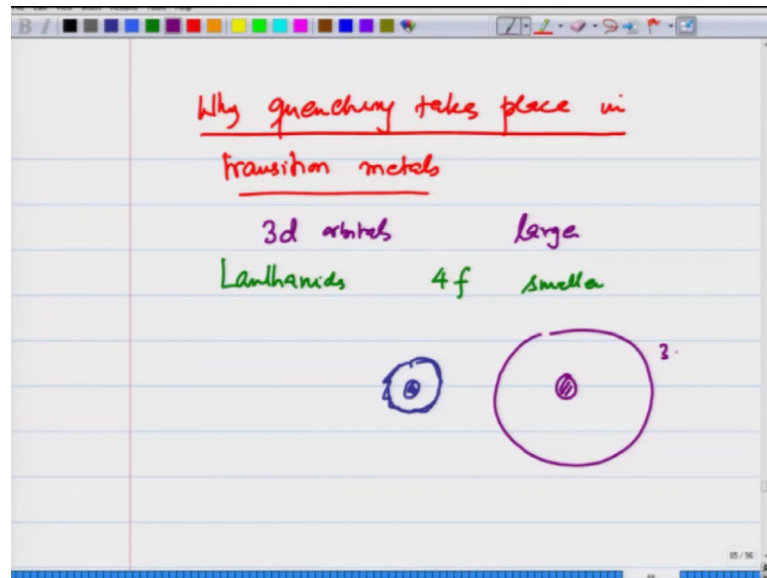 Why quenching takes place in
transition metals
3d orbitals large
Lanthanids 4f smaller
3
85 / 96